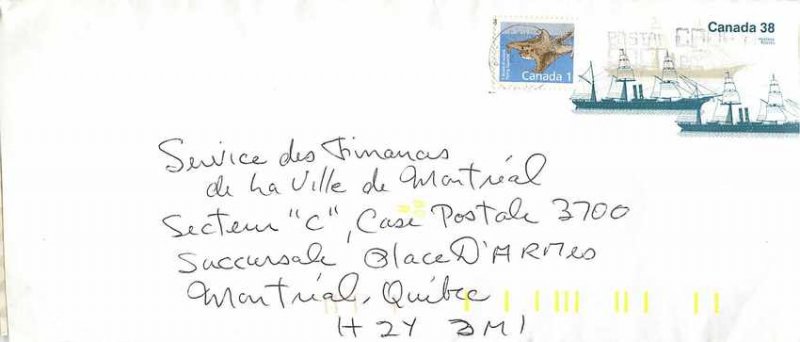 Canada 38
Canada 1
Service des Finances
de La Ville de Montréal
Secteur "C", Case Postale 3700
Succursale Place D'ARMES
Montréal, Québec
H2Y 3M1